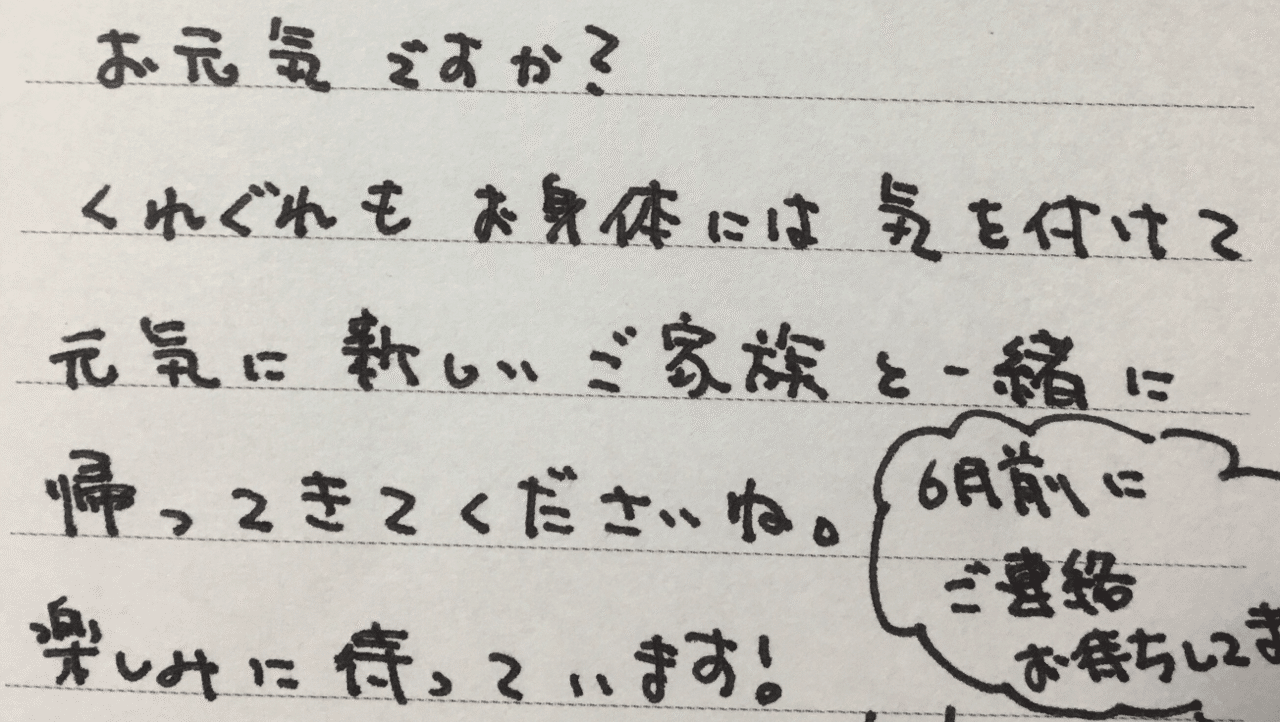 お元気ですか?
くれぐれも お身体には 気を付けて
元気に 新しい ご家族 と 一緒に
帰ってきてくださいね。
楽しみに 待って います!
6月前に
ご連絡
お待ちしてま